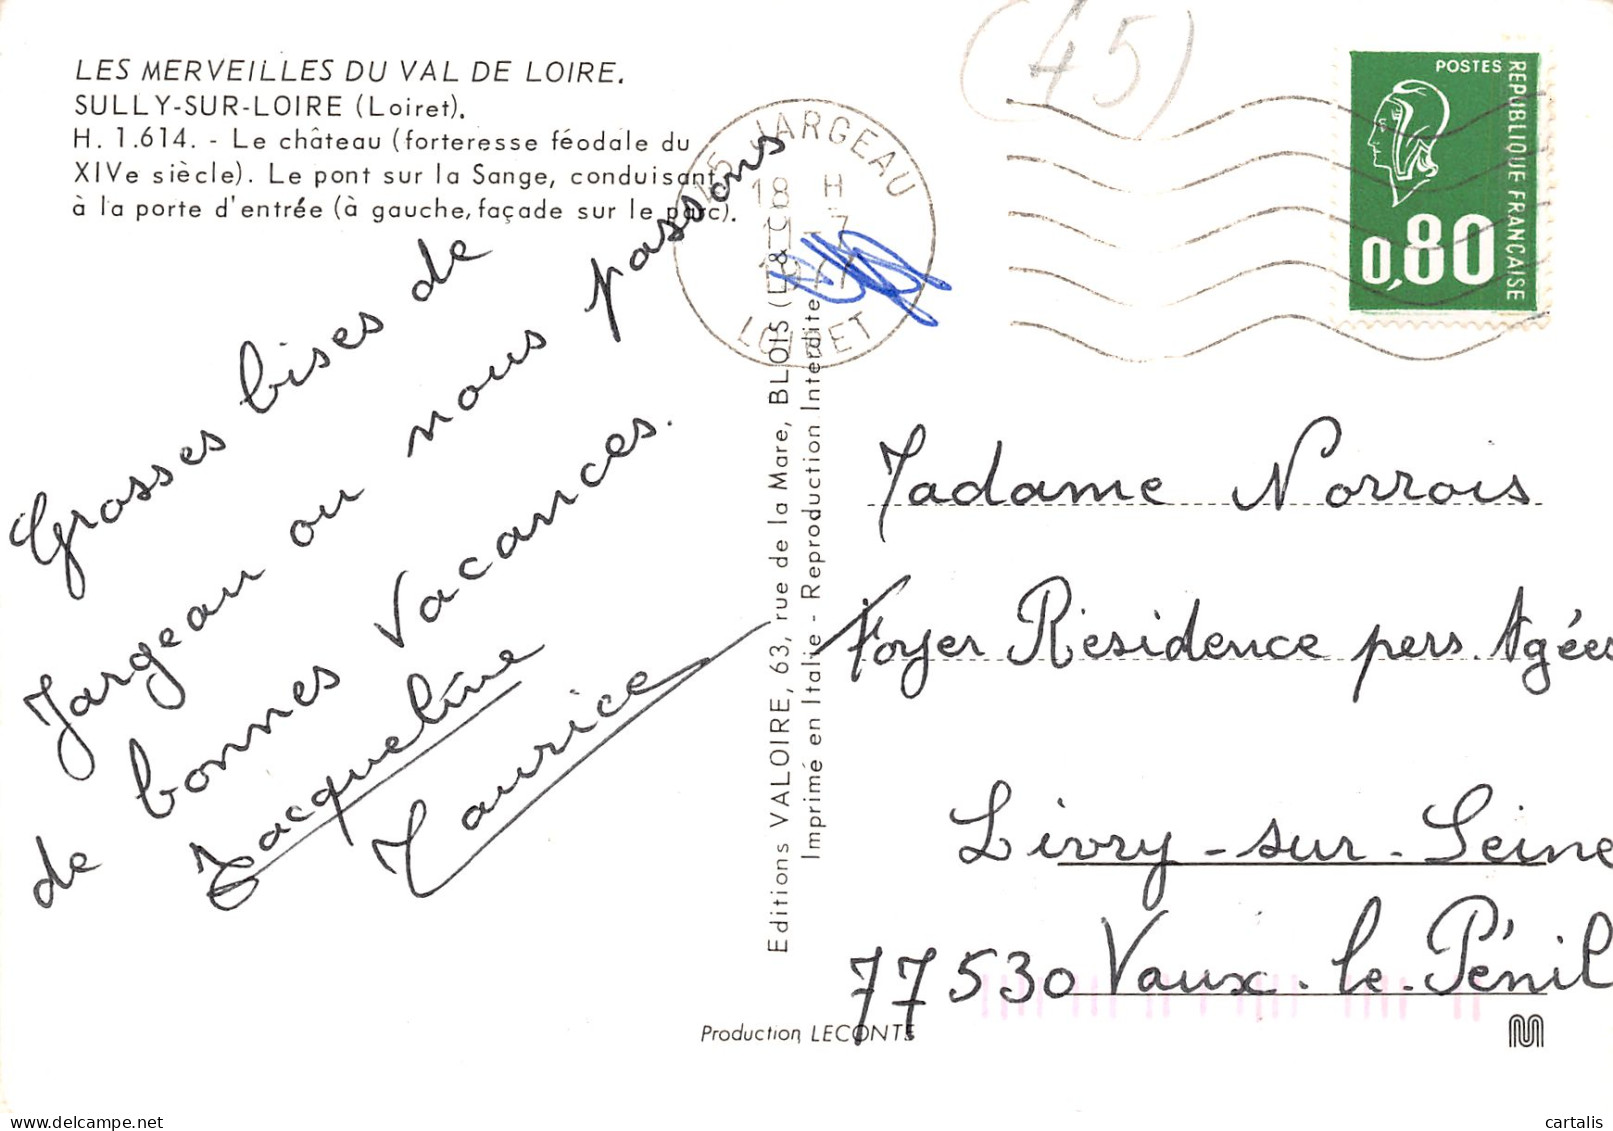 LES MERVEILLES DU VAL DE LOIRE.
SULLY-SUR-LOIRE (Loiret).
H. 1.614. - Le château (forteresse féodale du
XIVe siècle). Le pont sur la Sange, conduisant
à la porte d'entrée (à gauche, façade sur le parc).
(45)
45 JARGEAU
18 H
11-7
1977
LOIRET
POSTES
REPUBLIQUE FRANCAISE
0,80
Grosses bises de
Jargeau ou nous passons
de bonnes Vacances.
Jacqueline
Maurice
Editions VALOIRE, 63, rue de la Mare, BLOIS (L & C)
Imprimé en Italie - Reproduction Interdite
Madame Norrois
Foyer Résidence pers. Agées
Livry-sur-Seine
77530 Vaux-le-Pénil
Production LECONTE
cartalis